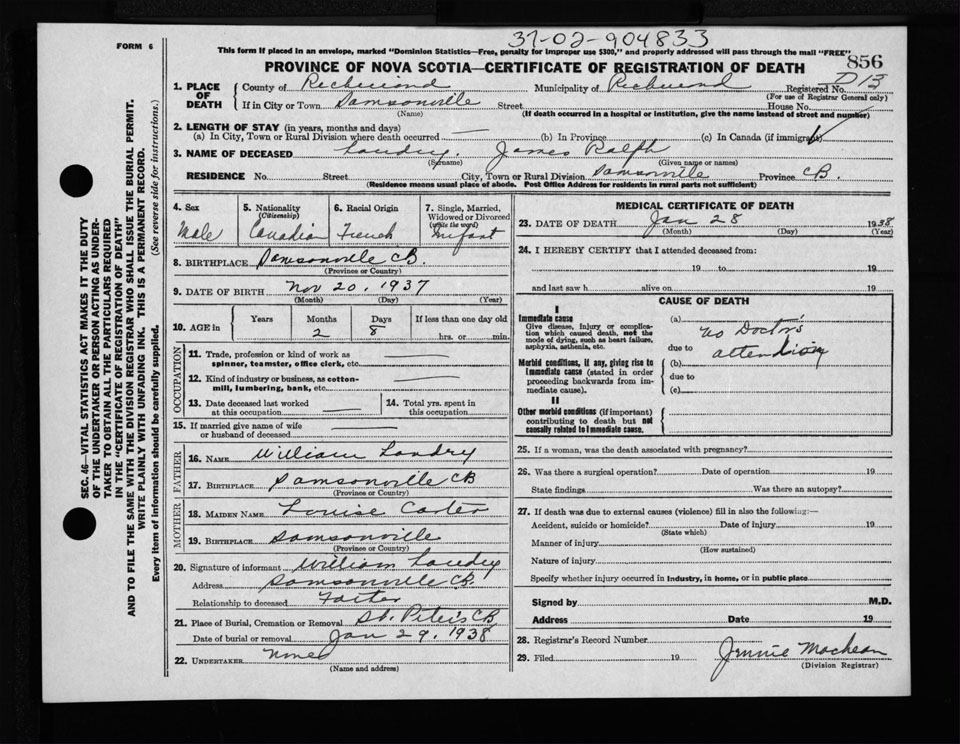 37-02-904833
FORM 6
This form if placed in an envelope, marked "Dominion Statistics—Free, penalty for improper use $300," and properly addressed will pass through the mail "FREE"
856
PROVINCE OF NOVA SCOTIA—CERTIFICATE OF REGISTRATION OF DEATH
D13
1. PLACE OF DEATH
County of Richmond Municipality of Richmond Registered No.
(For use of Registrar General only)
If in City or Town Samsonville Street House No.
(Name) (If death occurred in a hospital or institution, give the name instead of street and number)
2. LENGTH OF STAY (in years, months and days)
(a) In City, Town or Rural Division where death occurred — (b) In Province (c) In Canada (if immigrant)
3. NAME OF DECEASED Landry, James Ralph
(Surname) (Given name or names)
RESIDENCE No. Street City, Town or Rural Division Samsonville Province CB.
(Residence means usual place of abode. Post Office Address for residents in rural parts not sufficient)
4. Sex
Male
5. Nationality
(Citizenship)
Canadian
6. Racial Origin
French
7. Single, Married, Widowed or Divorced
(write the word)
Infant
8. BIRTHPLACE Samsonville CB.
(Province or Country)
9. DATE OF BIRTH Nov 20, 1937
(Month) (Day) (Year)
10. AGE in
Years Months Days If less than one day old
2 8 hrs. or min.
OCCUPATION
11. Trade, profession or kind of work as spinner, teamster, office clerk, etc. —
12. Kind of industry or business, as cotton-mill, lumbering, bank, etc. —
13. Date deceased last worked at this occupation —
14. Total yrs. spent in this occupation
15. If married give name of wife or husband of deceased —
FATHER
16. NAME William Landry
17. BIRTHPLACE Samsonville CB
(Province or Country)
MOTHER
18. MAIDEN NAME Louise Carter
19. BIRTHPLACE Samsonville
(Province or Country)
20. Signature of informant William Landry
Address Samsonville CB
Relationship to deceased Father
21. Place of Burial, Cremation or Removal St. Peters CB
Date of burial or removal Jan 29, 1938
22. UNDERTAKER None
(Name and address)
MEDICAL CERTIFICATE OF DEATH
23. DATE OF DEATH Jan 28 1938
(Month) (Day) (Year)
24. I HEREBY CERTIFY that I attended deceased from:
19 to 19
and last saw h alive on 19
CAUSE OF DEATH
I
Immediate cause
Give disease, injury or complication which caused death, not the mode of dying, such as heart failure, asphyxia, asthenia, etc.
(a) No Doctors
due to attending
Morbid conditions, if any, giving rise to immediate cause (stated in order proceeding backwards from immediate cause).
(b)
due to
(c)
II
Other morbid conditions (if important) contributing to death but not causally related to immediate cause.
25. If a woman, was the death associated with pregnancy?
26. Was there a surgical operation? Date of operation 19
State findings Was there an autopsy?
27. If death was due to external causes (violence) fill in also the following:—
Accident, suicide or homicide? Date of injury 19
(State which)
Manner of injury
(How sustained)
Nature of injury
Specify whether injury occurred in industry, in home, or in public place
Signed by M.D.
Address Date 19
28. Registrar's Record Number
29. Filed 19 Jennie MacLean
(Division Registrar)
SEC. 46—VITAL STATISTICS ACT MAKES IT THE DUTY
OF THE UNDERTAKER OR PERSON ACTING AS UNDER-
TAKER TO OBTAIN ALL THE PARTICULARS REQUIRED
IN THE "CERTIFICATE OF REGISTRATION OF DEATH"
AND TO FILE THE SAME WITH THE DIVISION REGISTRAR WHO SHALL ISSUE THE BURIAL PERMIT.
WRITE PLAINLY WITH UNFADING INK. THIS IS A PERMANENT RECORD.
Every item of information should be carefully supplied. (See reverse side for instructions.)